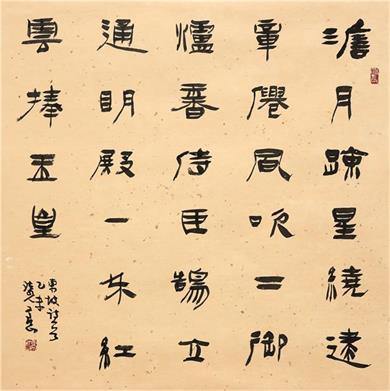 澹月疎星繞建
章僊風吹下御
爐香侍臣鵠立
通明殿一朵紅
雲捧玉皇
東坡詩
乙未